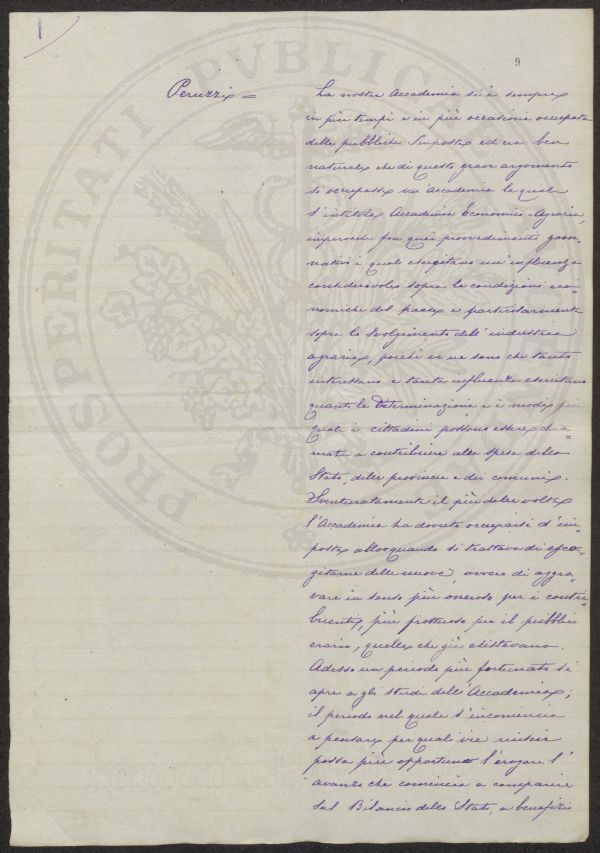 1
9
Peruzzi =
La nostra Accademia si è sempre
in più tempi e in più occasione occupata
delle pubbliche Imposte ed era ben
naturale che di questo grave argomento
si occupasse un'accademia la quale
s'intitola Accademia Economico Agraria,
imperocchè fra quei provvedimenti gover-
nativi i quali esercitano un'influenza
considerevole sopra le condizioni eco-
nomiche del paese e particolarmente
sopra lo svolgimento dell'industria
agraria, poichè ve ne sono che tanto
interessano e tanta influenza esercitano
quanto la determinazione e i modi pei
quali i cittadini possono essere chia-
mati a contribuire alle spese dello
Stato, delle provincie e dei comuni.
Sventuratamente il più delle volte
l'Accademia ha dovuto occuparsi d'im-
poste allorquando si trattava di esco-
gitarne delle nuove, ovvero di aggra-
vare in senso più oneroso per i contri-
buenti, più fruttuoso per il pubblico
erario, quelle che già esistevano.
Adesso un periodo più fortunato si
apre a gli studi dell'Accademia;
il periodo nel quale s'incomincia
a pensare per quali vie riuscir
possa più opportuno l'erogare l'
avanzo che comincia a comparire
sul Bilancio dello Stato, a benefizio
PROSPERITATI PVBLICAE